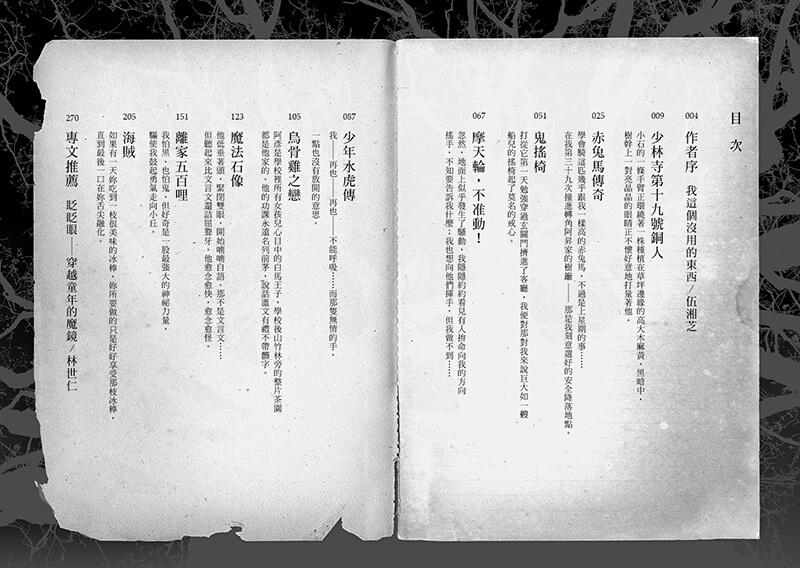 目次
004
作者序 我這個沒用的東西/伍湘芝
009
少林寺第十九號銅人
小石的一條手臂正環繞著一株種植在草坪邊緣的高大木麻黃,黑暗中,
樹幹上一對亮晶晶的眼睛正不懷好意地打量著他。
025
赤兔馬傳奇
學會騎這匹幾乎跟我一樣高的赤兔馬,不過是上星期的事……
在我第三十九次撞進轉角阿昇家的樹籬——那是我刻意選好的安全降落地點。
051
鬼搖椅
打從它第一天勉強穿過玄關門擠進了客廳,我便對那對我來說巨大如一艘
船兒的搖椅起了莫名的戒心。
067
摩天輪,不准動!
忽然,地面上似乎發生了騷動,我隱隱約約看見有人拚命向我的方向
搖手,不知要告訴我什麼;我也想向他們揮手,但我做不到……
087
少年水虎傳
我——再也——再也——不能呼吸……而那隻無情的手,
一點也沒有放開的意思。
105
烏骨雞之戀
阿彥是學校裡所有女孩兒心目中的白馬王子,學校後山竹林旁的整片茶園
都是他家的。他的功課永遠名列前茅,說話溫文有禮不帶髒字。
123
魔法石像
他低垂著頭,緊閉雙眼,開始喃喃自語。那不是文言文……
但聽起來比文言文還詰屈聱牙。他愈念愈快,愈念愈怪。
151
離家五百哩
我怕黑、也怕鬼,但好奇是一股最強大的神祕力量,
驅使我鼓起勇氣走向小丘。
205
海賊
如果有一天妳吃到一枝很美味的冰棒,妳所要做的只是好好享受那枝冰棒,
直到最後一口在妳舌尖融化。
270
專文推薦 眨眨眼——穿越童年的魔鏡/林世仁